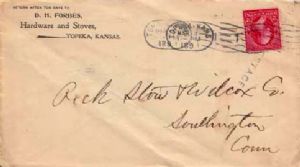 RETURN AFTER TEN DAYS TO
D. H. FORBES,
Hardware and Stoves,
TOPEKA, KANSAS.
Peck Stow & Wilcox Co.
Southington
Conn